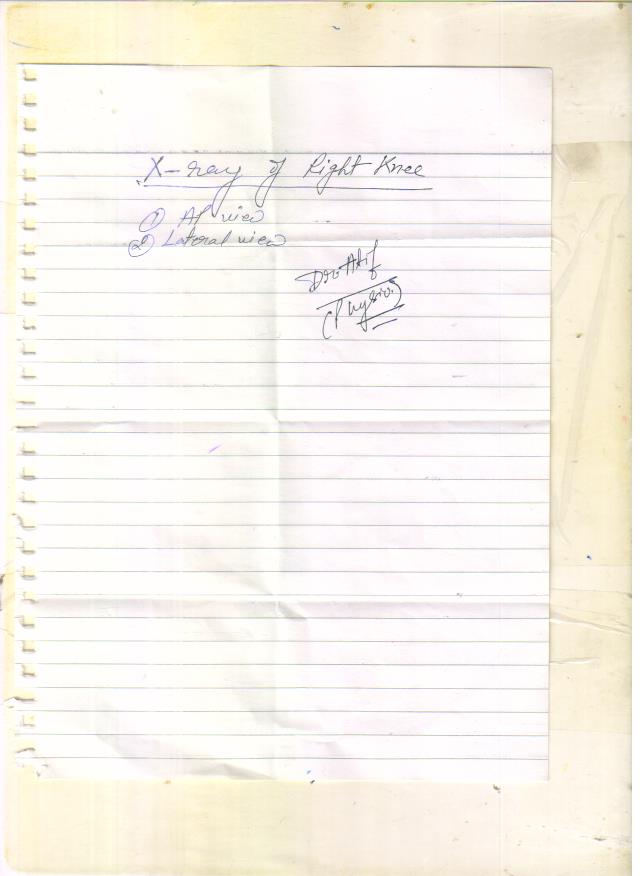 X-ray of Right Knee
① AP view
② Lateral view
Dr. Atif
(Physio)